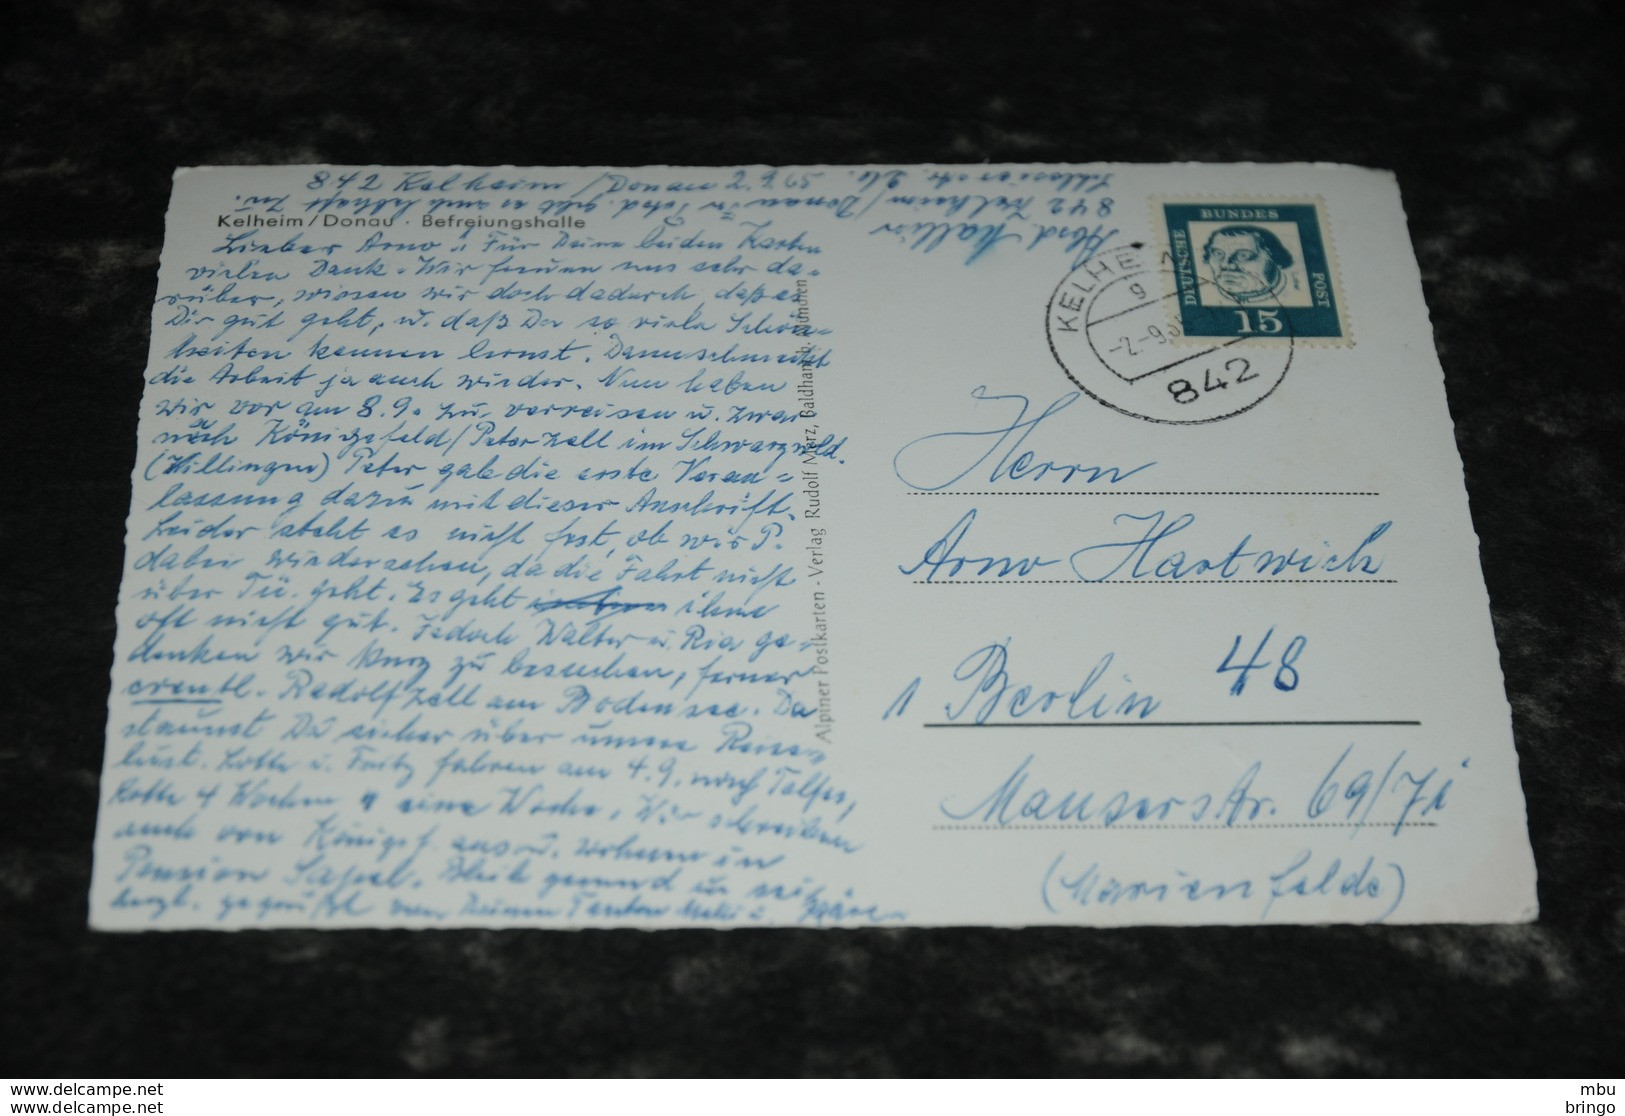 842 Kelheim/Donau 2.9.65
Kelheim/Donau · Befreiungshalle
Lieber Arno! Für Deine beiden Karten
vielen Dank. Wir freuen uns sehr da=
rüber, wissen wir doch dadurch, daß es
Dir gut geht, u. daß Du so viele Schön=
heiten kennen lernst. Dann schmeckt
die Arbeit ja auch wieder. Nun haben
wir vor am 8.9. zu verreisen u. zwar
nach Königsfeld/Peterzell im Schwarzwald.
(Villingen) Peter gab die erste Veran=
lassung dazu mit dieser Anschrift.
Leider steht es nicht fest, ob wir P.
dabei wiedersehen, da die Fahrt nicht
über Tü. geht. Es geht ihm
oft nicht gut. Jedoch Walter u. Ria ge=
denken wir kurz zu besuchen, ferner
eventl. Radolfzell am Bodensee. Da
staunst Du sicher über unsere Reise=
lust. Lotte u. Fritz fahren am 4.9. nach Telfes,
Lotte 4 Wochen eine Woche. Wir schreiben
auch von Königsf. aus u. wohnen in
Pension Sapel. Bleib gesund u. sei
herzl. gegrüßt von Deinen Tanten
Alpiner Postkarten - Verlag Rudolf Merz, Baldham b. München
Abs.
842 Kelheim/Donau
DEUTSCHE
BUNDES
POST
15
KELHEIM
-2.-9.65
842
Herrn
Arno Hartwich
1 Berlin 48
Mauserstr. 69/71
(Marienfelde)
www.delcampe.net
www.delcampe.net
mbu
bringo